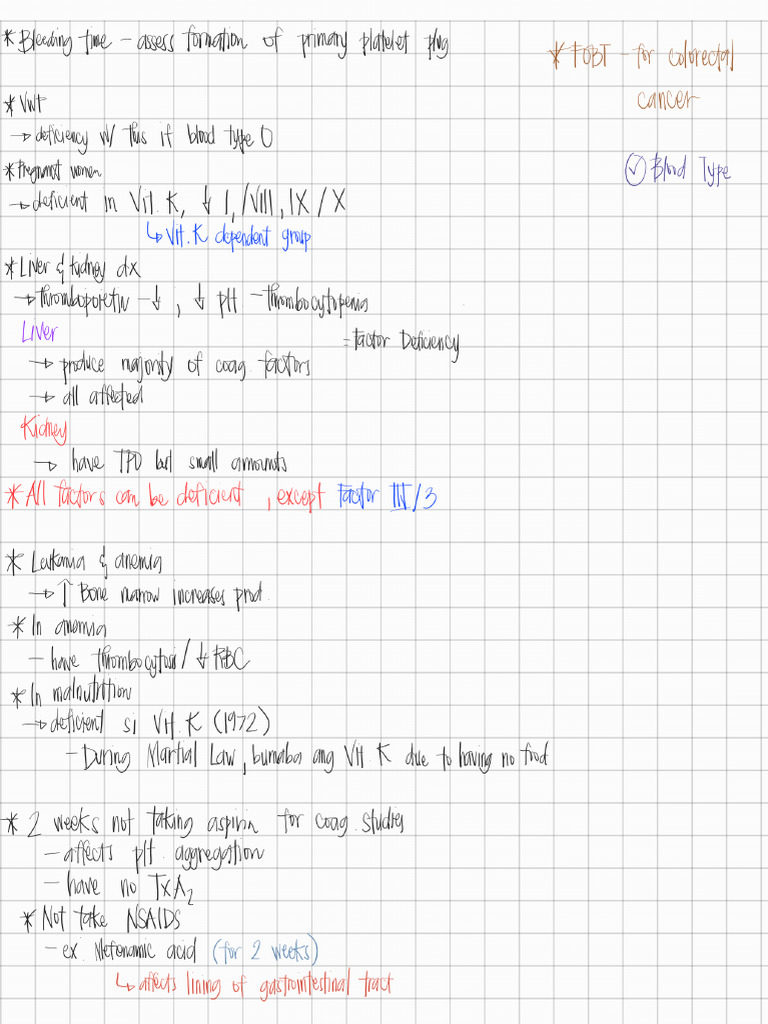 * Bleeding time – assess formation of primary platelet plug
* FOBT – for colorectal
cancer
* VWF
→ deficiency w/ this if blood type O
✓ Blood Type
* Pregnant women
→ deficient in Vit. K, ↓ I, /VIII, IX / X
↳ Vit. K dependent group
* Liver & kidney dx
→ thrombopoietin – ↓ , ↓ plt – thrombocytopenia
Liver
= Factor Deficiency
→ produce majority of coag. factors
→ all affected
Kidney
→ have TPO but small amounts
* All factors can be deficient , except Factor III/3
* Leukemia & anemia
→ ↑ Bone marrow increases prod.
* In anemia
– have thrombocytosis/ ↓ RBC
* In malnutrition
→ deficient si Vit. K (1972)
– During Martial Law, bumaba ang Vit. K due to having no food
* 2 weeks not taking aspirin for coag. studies
– affects plt. aggregation
– have no TxA₂
* Not take NSAIDS
– ex. Mefenamic acid (for 2 weeks)
↳ affects lining of gastrointestinal tract